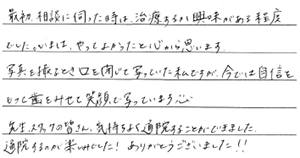 最初、相談に伺った時は、治療するか興味がある程度
でした。いまは、やってよかったと心から思います。
写真を撮るとき口を閉じて写っていた私ですが、今では自信を
もって歯をみせて笑顔で写っています
先生、スタッフの皆さん、気持ちよく通院することができました。
通院するのが楽しみでした！ありがとうございました！！